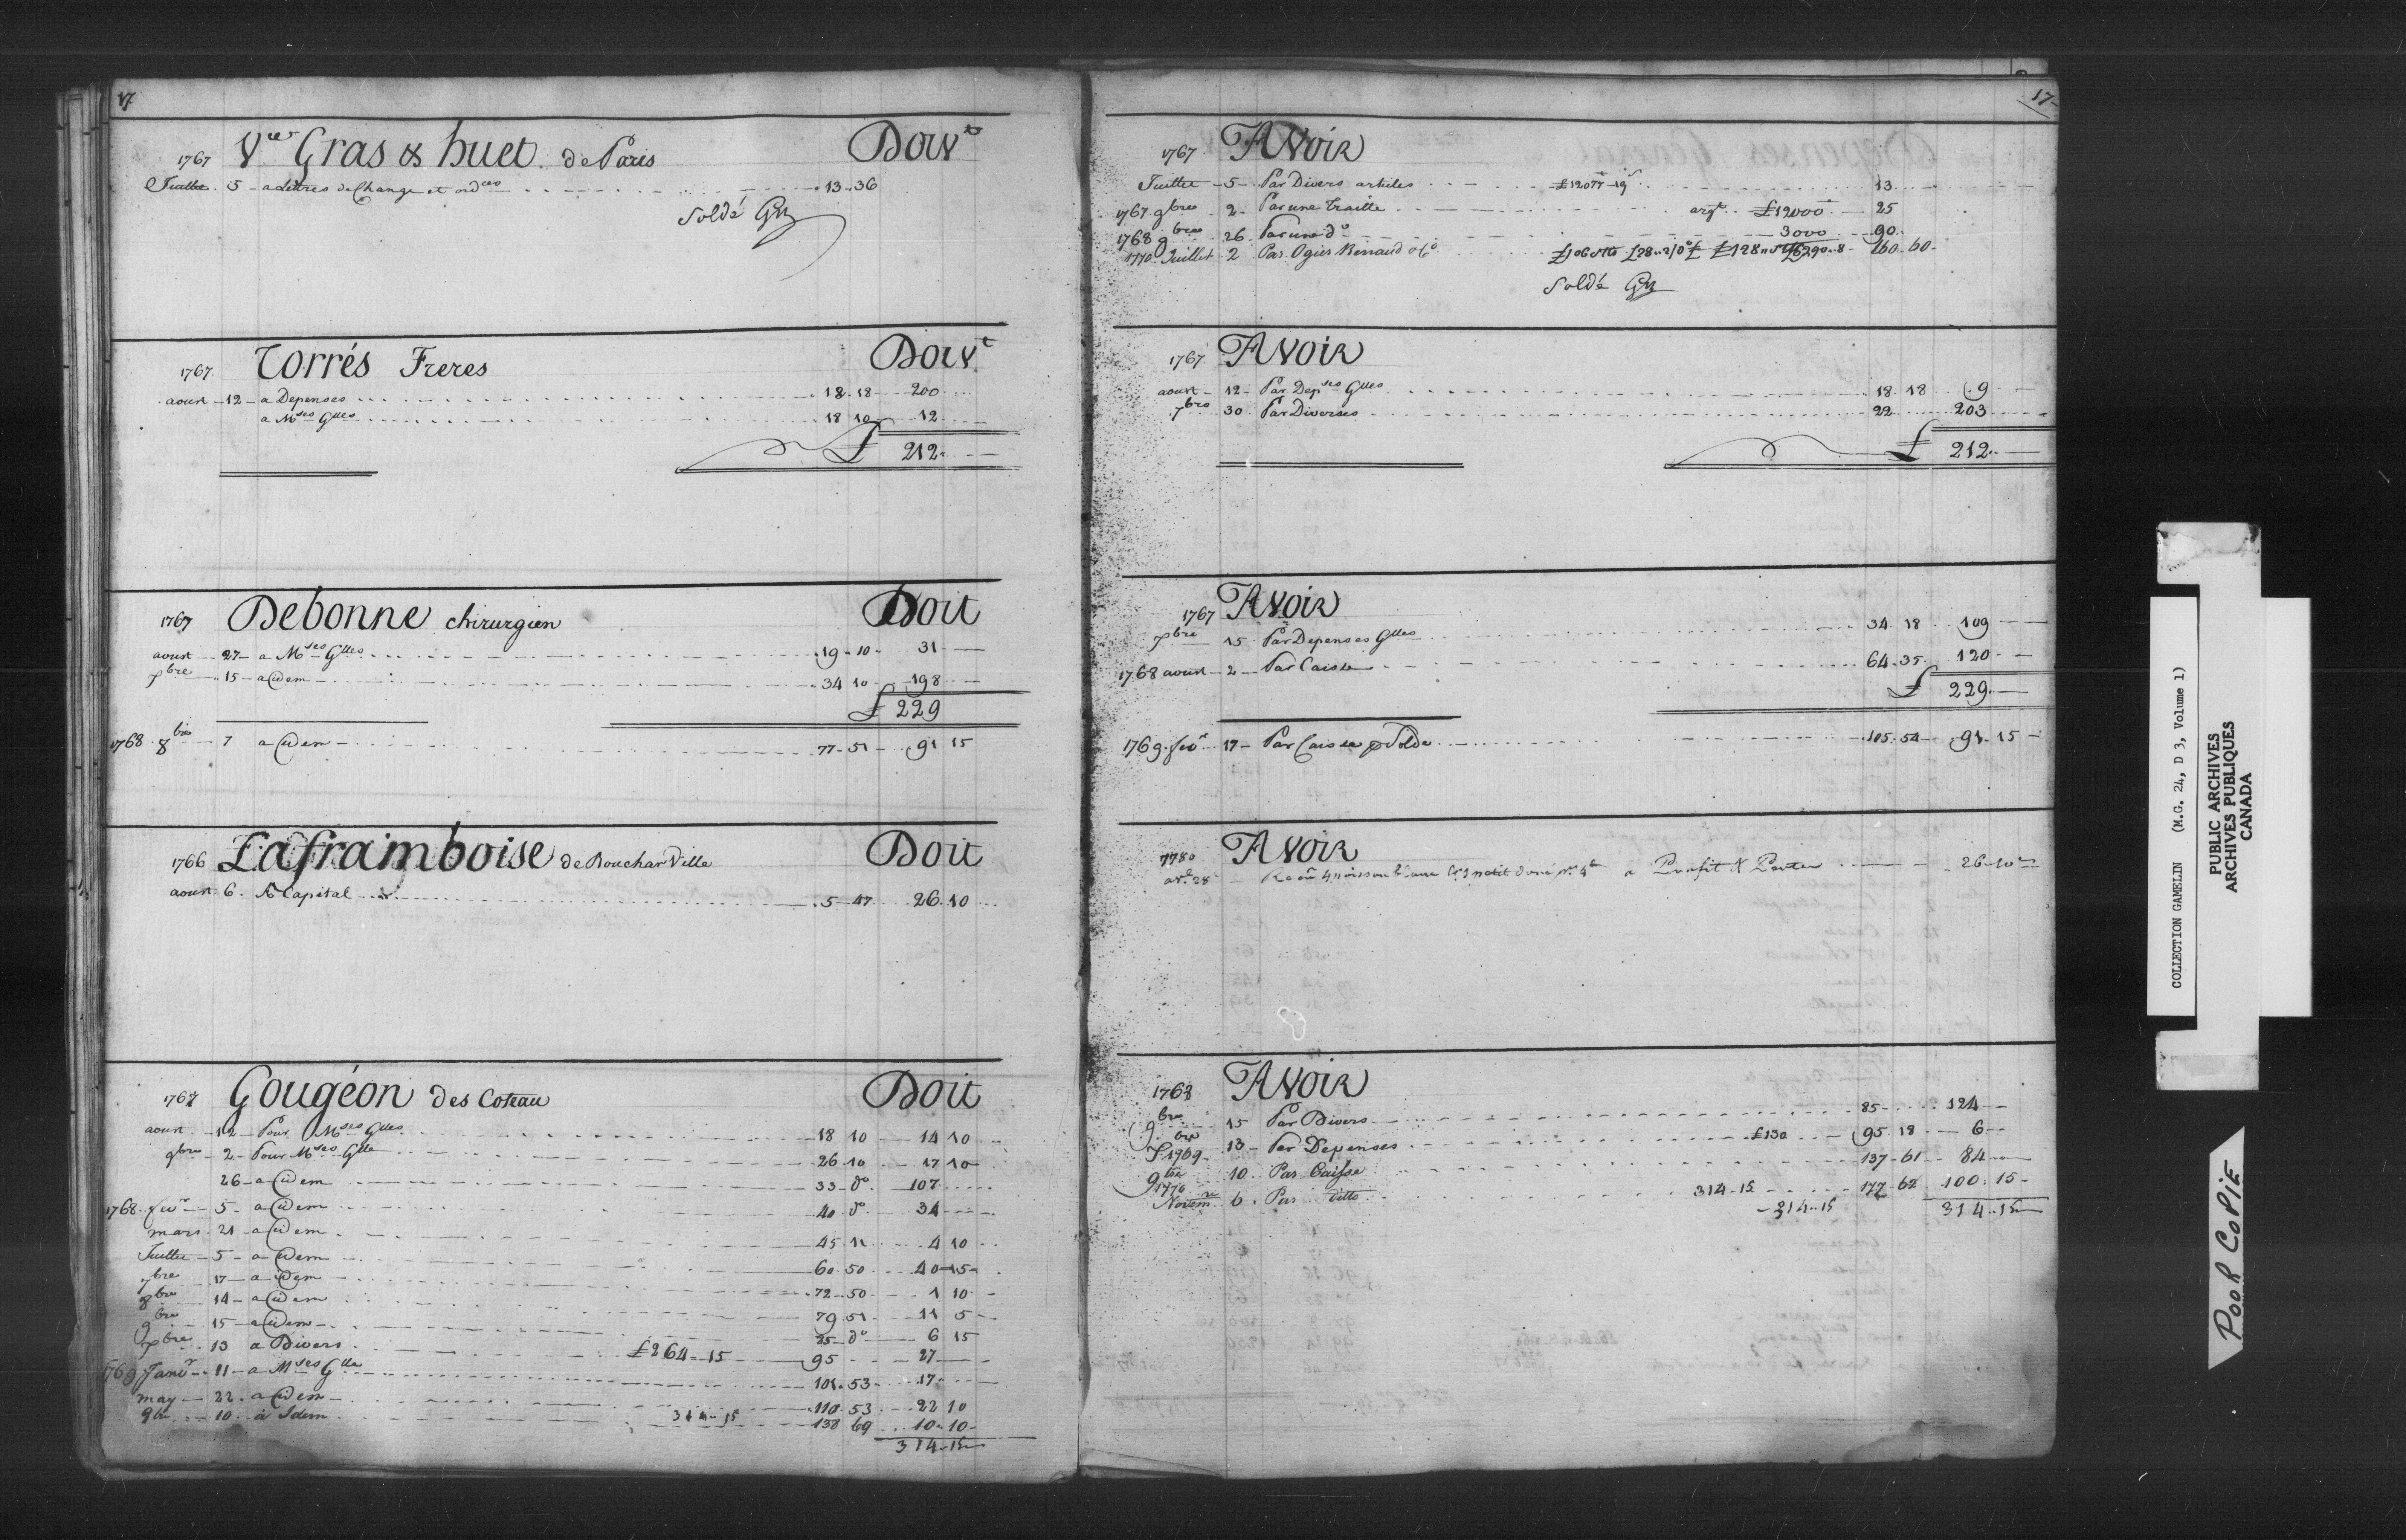 17
Vve Gras & huet de Paris Doivt
1767
Juillet 5 - a Lettres de Change et ordces 13 - 36
Soldé
Torrés Freres Doivt
1767
aoust - 12 - a Depenses 18 . 18 200
a Mses Glles 18 10 12
£ 212
Debonne chirurgien Doit
1767
aoust 27 - a Mses Glles 19 - 10 31
7bre 15 - a Idem 34 10 198
£ 229
1768 8bre 7 a Idem 77 - 51 91 15
Laframboise de Boucharville Doit
1766
aoust 6. A Capital 5 47 26 10
Gougéon des Coteau Doit
1767
aoust 12 - Pour Mses Glles 18 10 14 10
9bre 2 - Pour Mses Glle 26 . 10 17 10
26 - a Idem 33 - do 107
1768 fevr 5 - a Idem 40 do 34
mars 21 - a Idem 45 . 11 4 10
Juillet - 5 - a Idem 60 . 50 40 - 15
7bre 17 - a Idem 72 - 50 1 10
8bre 14 - a Idem 79 . 51 11 5
9bre 15 - a Idem 85 - do 6 15
Xbre 13 a Divers £264 - 15 95 27
1769 Janvr 11 - a Mses Glle 101 . 53 17
may - 22 . a Idem 110 . 53 22 10
9bre 10 . à Idem 314 - 15 138 69 10 . 10
314 - 15
17
1767 Avoir
Juillet - 5 - Par Divers articles 13
1767 9bre 2 - Par une traitte argt £12000 25
1768 9bre 26 Par une do 3000 90
1770 Juillet 2 Par Ogier Renaud & Co 160 . 60
Soldé
1767 Avoir
aoust - 12 - Par Depses Glles 18 . 18 9
7bre 30 Par Diverses 22 203
£ 212
1767 Avoir
7bre 15 Par Depenses Glles 34 18 109
1768 aoust - 2 - Par Caisse 64 . 35 120
£ 229
1769 fevr 17 - Par Caisse p Solde 105 . 54 91 . 15
1780 Avoir
avl 28 a Profit & Perte 26 - 10
1768 Avoir
9bre 15 Par Divers 85 124
Xbre 13 - Par Depenses £130 95 . 18 6
1769
9bre 10 Par Caisse 137 - 61 84
1770
Novemre 6 . Par ditto 314 - 15 177 62 100 . 15
314 . 15 314 . 15
COLLECTION GAMELIN (M.G. 24, D 3, Volume 1)
PUBLIC ARCHIVES
ARCHIVES PUBLIQUES
CANADA
POOR COPIE